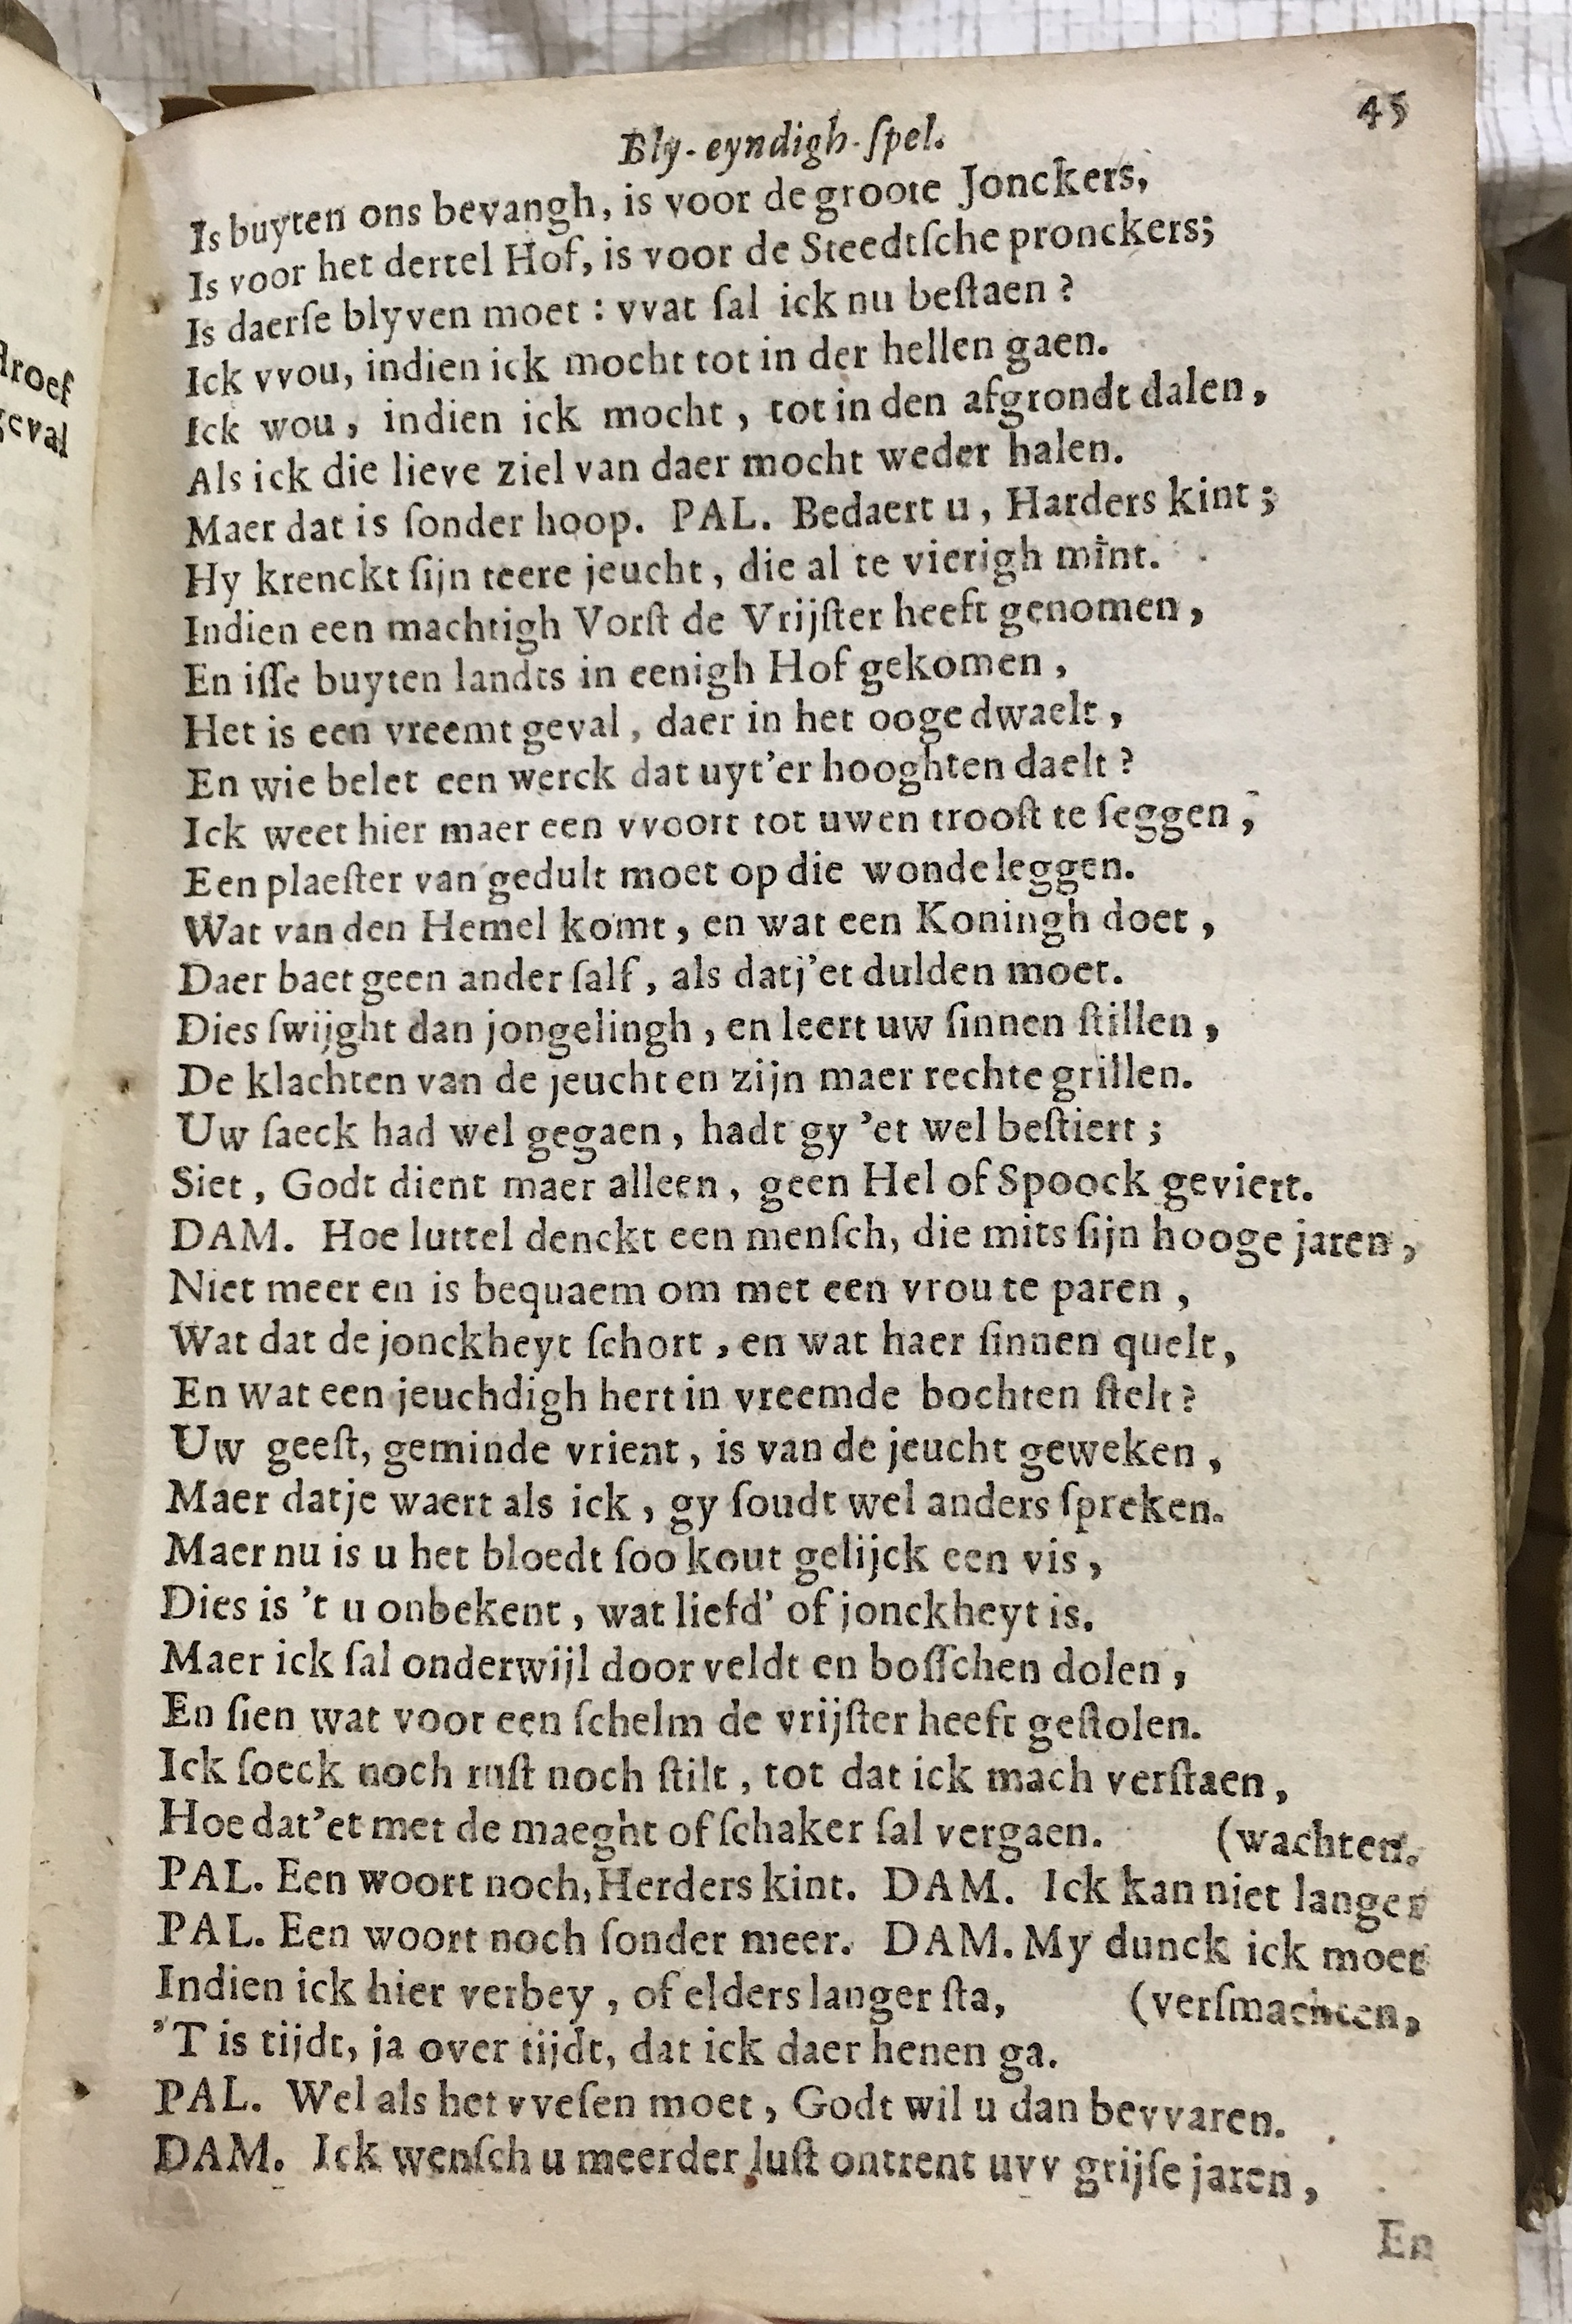 45
Bly-eyndigh-ſpel.
Is buyten ons bevangh, is voor de groote Jonckers,
Is voor het dertel Hof, is voor de Steedtſche pronckers;
Is daerſe blyven moet : vvat ſal ick nu beſtaen ?
Ick vvou, indien ick mocht tot in der hellen gaen.
Ick wou, indien ick mocht, tot in den afgrondt dalen,
Als ick die lieve ziel van daer mocht weder halen.
Maer dat is ſonder hoop. PAL. Bedaert u, Harders kint;
Hy krenckt ſijn teere jeucht, die al te vierigh mint.
Indien een machtigh Vorſt de Vrijſter heeft genomen,
En iſſe buyten landts in eenigh Hof gekomen,
Het is een vreemt geval, daer in het ooge dwaelt,
En wie belet een werck dat uyt'er hooghten daelt ?
Ick weet hier maer een vvoort tot uwen trooſt te ſeggen,
Een plaeſter van gedult moet op die wonde leggen.
Wat van den Hemel komt, en wat een Koningh doet,
Daer baet geen ander ſalf, als datj'et dulden moet.
Dies ſwijght dan jongelingh, en leert uw ſinnen ſtillen,
De klachten van de jeucht en zijn maer rechte grillen.
Uw ſaeck had wel gegaen, hadt gy 'et wel beſtiert ;
Siet, Godt dient maer alleen, geen Hel of Spoock geviert.
DAM. Hoe luttel denckt een menſch, die mits ſijn hooge jaren,
Niet meer en is bequaem om met een vrou te paren,
Wat dat de jonckheyt ſchort, en wat haer ſinnen quelt,
En wat een jeuchdigh hert in vreemde bochten ſtelt?
Uw geeſt, geminde vrient, is van de jeucht geweken,
Maer datje waert als ick, gy ſoudt wel anders ſpreken.
Maer nu is u het bloedt ſoo kout gelijck een vis,
Dies is 't u onbekent, wat liefd' of jonckheyt is.
Maer ick ſal onderwijl door veldt en boſſchen dolen,
En ſien wat voor een ſchelm de vrijſter heeft geſtolen.
Ick ſoeck noch ruſt noch ſtilt, tot dat ick mach verſtaen,
Hoe dat'et met de maeght of ſchaker ſal vergaen. (wachten.
PAL. Een woort noch, Herders kint. DAM. Ick kan niet langer
PAL. Een woort noch ſonder meer. DAM. My dunck ick moet
Indien ick hier verbey, of elders langer ſta, (verſmachten,
'T is tijdt, ja over tijdt, dat ick daer henen ga.
PAL. Wel als het vveſen moet, Godt wil u dan bevvaren.
DAM. Ick wenſch u meerder luſt ontrent uvv grijſe jaren,
En
droef
geval